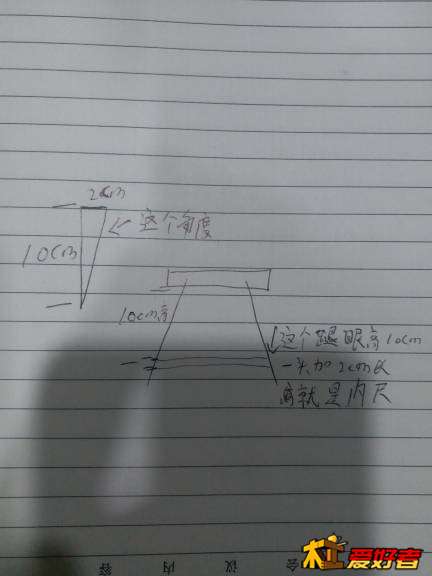 2cm
←这个角度
10cm
10cm高
这个腿眼高10cm
一头加2cm
就是内尺
会议内容
木工爱好者